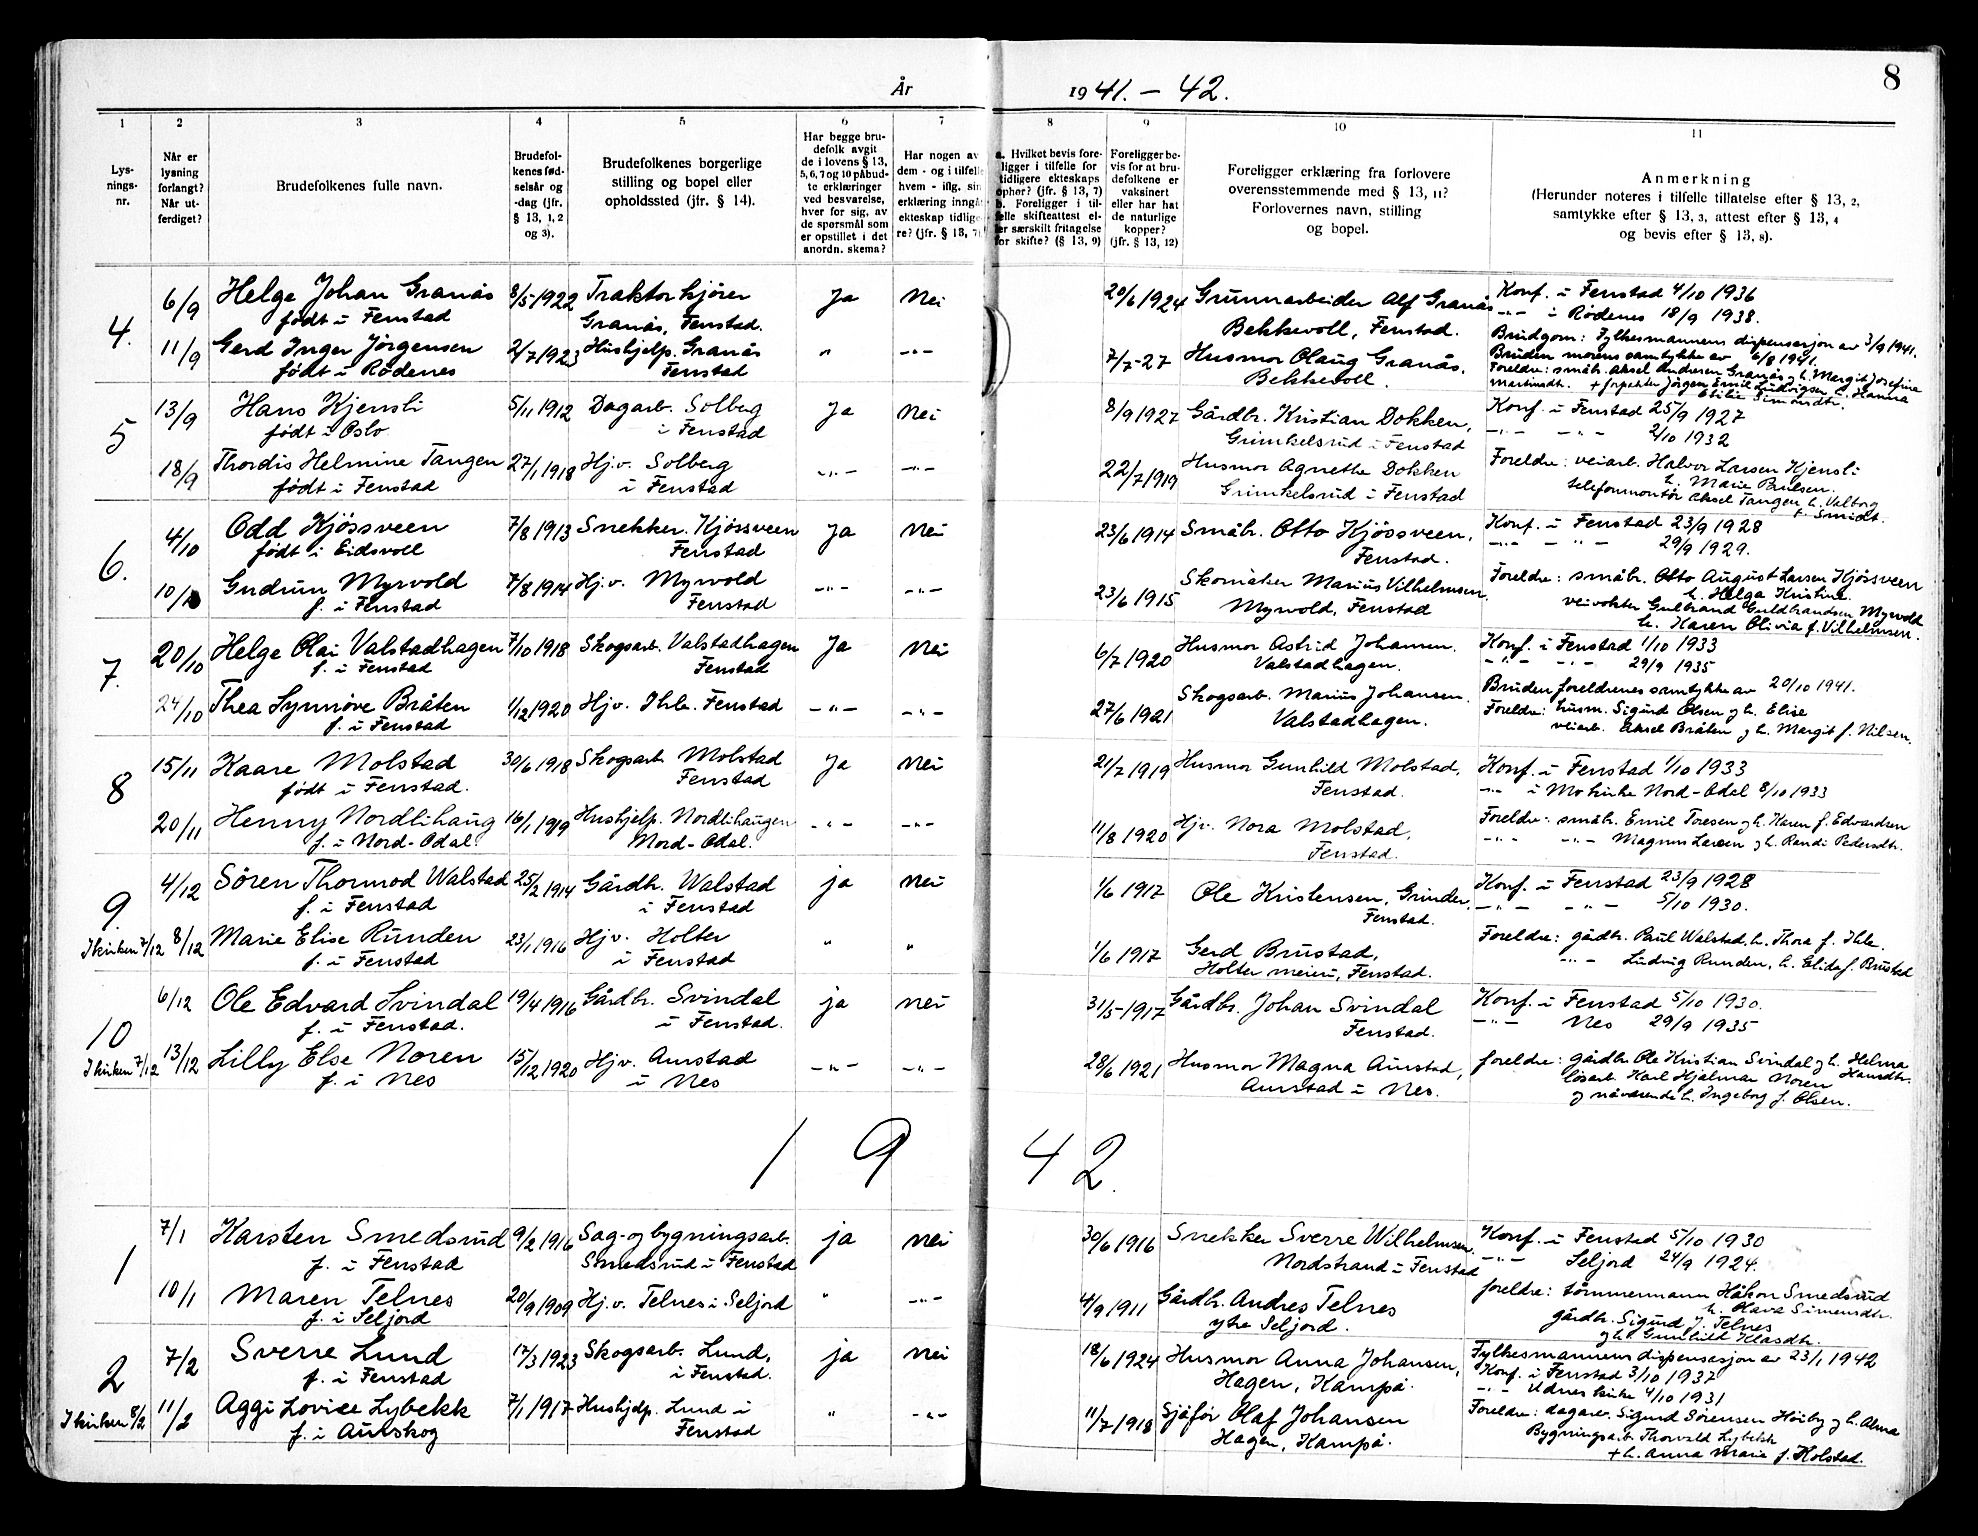 8
År 1941. – 42.
1 2 3 4 5 6 7 8 9 10 11
Lys-
nings-
nr.
Når er
lysning
forlangt?
Når ut-
ferdiget?
Brudefolkenes fulle navn.
Brudefol-
kenes fød-
selsår og
-dag (jfr.
§ 13, 1, 2
og 3).
Brudefolkenes borgerlige
stilling og bopel eller
opholdssted (jfr. § 14).
Har begge bru-
defolk avgit
de i lovens § 13,
5, 6, 7 og 10 påbud-
te erklæringer
ved besvarelse,
hver for sig, av
de spørsmål som
er opstillet i det
anordn. skema?
Har nogen av
dem - og i tilfelle
hvem - iflg. sin
erklæring inngått
ekteskap tidlige-
re? (jfr. § 13, 7)
a. Hvilket bevis fore-
ligger i tilfelle for
tidligere ekteskaps
ophør? (jfr. § 13, 7)
b. Foreligger i til-
felle skifteattest el-
ler særskilt fritagelse
for skifte? (§ 13, 9)
Foreligger be-
vis for at bru-
defolkene er
vaksinert
eller har hat
de naturlige
kopper?
(jfr. § 13, 12)
Foreligger erklæring fra forlovere
overensstemmende med § 13, 11?
Forlovernes navn, stilling
og bopel.
Anmerkning
(Herunder noteres i tilfelle tillatelse efter § 13, 2,
samtykke efter § 13, 3, attest efter § 13, 4
og bevis efter § 13, 8).
4. 6/9 Helge Johan Granås 8/5 1922 Traktorkjører Ja Nei 20/6 1924 Grunnarbeider Alf Granås Konf. i Fenstad 4/10 1936
født i Fenstad Granås, Fenstad. Bekkevoll, Fenstad. -"- i Rødenes 18/9 1938.
11/9 Gerd Inger Jörgensen 2/7 1923 Hushjelp. Granås " -"- 7/7-27 Husmor Olaug Granås, Brudgom: Fylkesmannens dispensasjon av 3/9 1941.
født i Rødenes Fenstad Bekkevoll. Bruden morens samtykke av 6/8 1941.
Foreldre: småbr. Aksel Andersen Granås og h. Margit Josefine
Martinsdtr. + forpakter Jörgen Emil Ludvigsen h. Hanna
Emilie Simonsdtr.
5 13/9 Hans Kjensli 5/11 1912 Dagarb. Solberg Ja Nei 8/9 1927 Gårdbr. Kristian Dokken, Konf. i Fenstad 25/9 1927
født i Oslo i Fenstad Grimkelsrud i Fenstad -"- -"- 2/10 1932
18/9 Thordis Helmine Tangen 27/1 1918 Hj.v. Solberg -"- -"- 22/7 1919 Husmor Agnethe Dokken Foreldre: veiarb. Halvor Larsen Kjensli
født i Fenstad i Fenstad Grimkelsrud i Fenstad h. Marie Paulsen.
telefonmontör Aksel Tangen h. Valborg
f. Smidt.
6. 4/10 Odd Kjössveen 7/8 1913 Snekker. Kjössveen Ja Nei 23/6 1914 Småbr. Otto Kjössveen, Konf. i Fenstad 23/9 1928
født i Eidsvoll Fenstad Fenstad. -"- -"- 29/9 1929.
10/10 Gudrun Myrvold 7/8 1914 Hj.v. Myrvold -"- -"- 23/6 1915 Skomaker Marius Vilhelmsen, Foreldre: småbr. Otto August Larsen Kjössveen
f. i Fenstad Fenstad Myrvold, Fenstad h. Helga Kristine.
veivokter Gulbrand Guldbrandsen Myrvold
h. Karen Olivia f. Vilhelmsen.
7. 20/10 Helge Olai Valstadhagen 7/10 1918 Skogsarb. Valstadhagen Ja Nei 6/7 1920 Husmor Astrid Johansen. Konf. i Fenstad 1/10 1933
f. i Fenstad Fenstad Valstadhagen. -"- -"- 29/9 1935
24/10 Thea Synnöve Bråten 1/12 1920 Hjv. Ihle. Fenstad -"- -"- 27/6 1921 Skogsarb. Marius Johansen. Bruden foreldrenes samtykke av 20/10 1941.
f. i Fenstad Valstadhagen. Foreldre: husm. Sigurd Olsen og h. Elise
veiarb. Aksel Bråten og h. Margit f. Nilsen.
8 15/11 Kaare Molstad 30/6 1918 Skogsarb. Molstad Ja Nei 21/7 1919 Husmor Gunhild Molstad, Konf. i Fenstad 1/10 1933
født i Fenstad. Fenstad Fenstad. -"- i Mo kirke Nord-Odal 8/10 1933
20/11 Henny Nordlihaug 16/1 1919 Hushjelp. Nordlihaugen -"- -"- 11/8 1920 Hjv. Nora Molstad, Foreldre: småbr. Emil Toresen og h. Karen f. Edvardsen
f. i Nord-Odal Nord-Odal. Fenstad. -"- -"- Magnus Larsen og h. Randi Pedersdtr.
9. 4/12 Sören Thormod Walstad 25/2 1914 Gårdbr. Walstad ja nei 1/6 1917 Ole Kristensen, Grinder, Konf. i Fenstad 23/9 1928
f. i Fenstad i Fenstad Fenstad. -"- -"- 5/10 1930.
I kirken 7/12 8/12 Marie Elise Runden 23/1 1916 Hjv. Holter " " 1/6 1917 Gerd Brustad, Foreldre: gårdbr. Paul Walstad, h. Thora f. Ihle.
f. i Fenstad i Fenstad Holter meieri, Fenstad. -"- Ludvig Runden, h. Elida f. Brustad
10 6/12 Ole Edvard Svindal 19/4 1916 Gårdbr. Svindal ja nei 31/5-1917 Gårdbr. Johan Svindal Konf. i Fenstad 5/10 1930.
f. i Fenstad. i Fenstad. Fenstad. -"- Nes 29/9 1935
I kirken 7/12 13/12 Lilly Else Noren 15/12 1920 Hjv. Aurstad -"- -"- 28/6 1921 Husmor Magna Aurstad, foreldre: gårdbr. Ole Kristian Svindal og h. Helma
f. i Nes i Nes Aurstad i Nes. Hansdtr.
løsarb. Karl Hjalmar Noren
og nåværende h. Ingeborg f. Olsen.
1 9 4 2.
1 7/1 Karsten Smedsrud 9/2 1916 Sag- og bygningsarb. ja nei 30/6 1916 Snekker Sverre Wilhelmsen. Konf. i Fenstad 5/10 1930
f. i Fenstad Smedsrud i Fenstad Nordstrand i Fenstad -"- Seljord 24/9 1924.
10/1 Maren Telnes 20/9 1909 Hj.v. Telnes i Seljord " -"- 4/9 1911 Gårdbr. Andres Telnes foreldre: tömmermann Håkon Smedsrud
f. i Seljord ytre Seljord. h. Hava Simensdtr.
gårdbr. Sigurd J. Telnes
og h. Gunhild Klasdtr.
2 7/2 Sverre Lund 17/3 1923 Skogsarb. Lund, ja nei 18/6 1924 Husmor Anna Johansen, Fylkesmannens dispensasjon av 23/1 1942
f. i Fenstad i Fenstad. Hagen, Kampå. Konf. i Fenstad 3/10 1937
-"- Udnes kirke 4/10 1931
I kirken 8/2 11/2 Aggi Lovise Lybekk 7/1 1917 Hushjelp. Lund i " -"- 11/7 1918 Sjåför Olaf Johansen Foreldre: dagarb. Sigurd Sörensen Høiby og h. Alma
f. i Aurskog Fenstad Hagen, Kampå. Bygningsarb. Thorvald Lybekk
+ h. Anna Marie f. Kolstad.